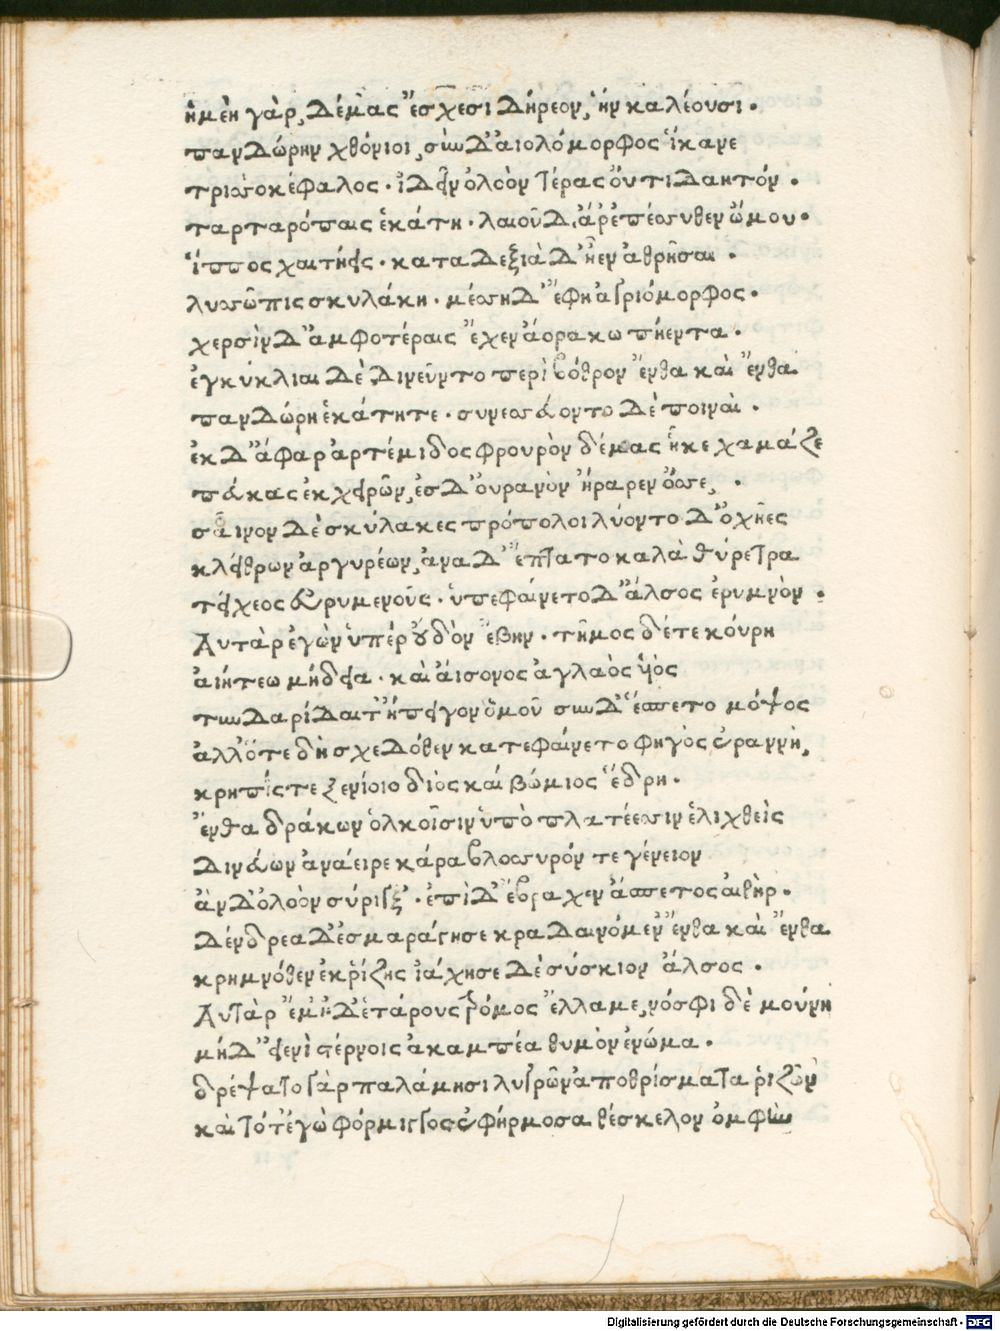 ἡμὲν γὰρ, Δέμας ἔσχε σιΔήρεον, ἣν καλέουσι.
πανΔώρην χθόνιοι, σὺν Δ' αἰολόμορφος ἵκανε
τρισσοκέφαλος. ἰΔεῖν ὀλοὸν τέρας οὔτι Δαητόν.
ταρταρόπαις ἑκάτη. λαιοῦ Δ' ἄρ' ἐπέσσυθεν ὤμου.
ἵππος χαιτήεις. κατα Δεξιὰ Δ' ἦεν ἀθρῆσαι.
λυσσῶπις σκυλάκη. μέσση Δ' ἔφη ἀγριόμορφος.
χερσὶν Δ' ἀμφοτέραις ἔχεν ἄορα κωπήεντα.
ἐγκύκλιαι Δὲ Δινεῦντο περὶ βόθρον ἔνθα καὶ ἔνθα
πανΔώρη ἑκάτη τε. συνεσσεύοντο Δὲ ποιναὶ.
ἐκ Δ' ἄφαρ ἀρτέμιδος φρουρὸν δέμας ἧκε χαμάζε
πεύκας ἐκ χειρῶν, ἐς Δ' οὐρανὸν ἤραρεν ὄσσε, .
σαῖνον Δὲ σκύλακες πρόπολοι λύοντο Δ' ὀχῆες
κλείθρων ἀργυρέων, ἀνα Δ' ἔπτατο καλὰ θύρετρα
τείχεος εὐρυμενοῦς. ὑπεφαίνετο Δ' ἄλσος ἐρυμνὸν.
Αὐτὰρ ἐγὼν ὑπέρ οὐδὸν ἔβην. τῆμος δέ τε κόυρη
ἀιήτεω μήδεια. καὶ ἀίσονος ἀγλαὸς ὑιὸς
τυνΔαρίΔαι τ' ἤπειγον ὁμοῦ σὺν Δ' ἕσπετο μόψος
ἀλλ' ὅτε δὴ σχεΔόθεν κατεφαίνετο φηγὸς ἐραννὴ,
κρηπίς τε ξενίοιο διὸς καί βώμιος ἕδρη.
ἔνθα δράκων ὁλκοῖσιν ὑπὸ πλατέεσσιν ἑλιχθεὶς
Δινεύων ἀνάειρε κάρα βλοσσυρόν τε γένειον
ἀν Δ' ὀλοὸν σύριξ'. ἐπὶ Δ' ἔβραχεν ἄσπετος αἰθὴρ.
Δένδρεα Δ' ἐσμαράγησε κραΔαινόμεν' ἔνθα καὶ ἔνθα
κρημνόθεν ἐκ ῥίζης ἰάχησε Δὲ σύσκιον ἄλσος.
Αὐτὰρ ἔμ' ἠΔ' ἑτάρους τρόμος ἔλλαμε, νόσφι δὲ μούνη
μήΔεί' ἐνὶ στέρνοις ἀκαμπέα θυμὸν ἐνώμα.
δρέψατο γὰρ παλάμησι λυγρῶν ἀποθρίσματα ῥιζῶν
καὶ τότ' ἐγὼ φόρμιγγος ἐφήρμοσα θέσκελον ὀμφὼ
Digitalisierung gefördert durch die Deutsche Forschungsgemeinschaft - DFG